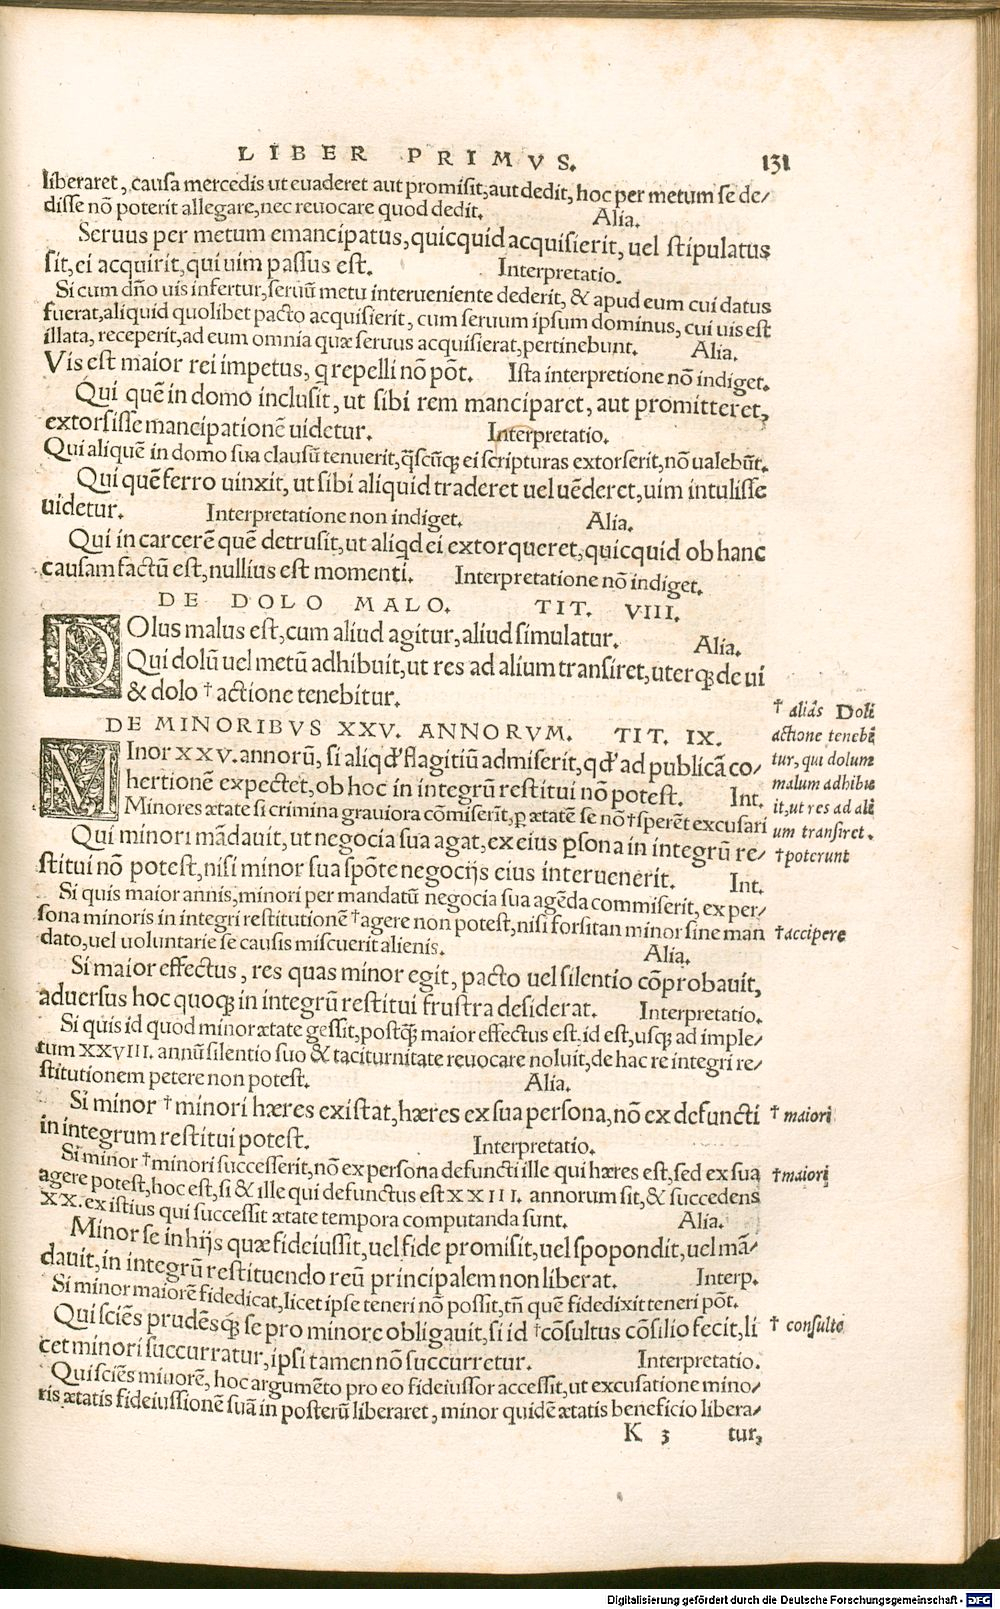 LIBER PRIMVS. 131
liberaret, causa mercedis ut euaderet aut promisit, aut dedit, hoc per metum se de/
disse nõ poterit allegare, nec reuocare quod dedit. Alia.
Seruus per metum emancipatus, quicquid acquisierit, uel stipulatus
sit, ei acquirit, qui uim passus est. Interpretatio.
Si cum dño uis infertur, seruũ metu interueniente dederit, & apud eum cui datus
fuerat, aliquid quolibet pacto acquisierit, cum seruum ipsum dominus, cui uis est
illata, receperit, ad eum omnia quæ seruus acquisierat, pertinebunt. Alia.
Vis est maior rei impetus, q repelli nõ põt. Ista interpretione nõ indiget.
Qui quẽ in domo inclusit, ut sibi rem manciparet, aut promitteret,
extorsisse mancipationẽ uidetur. Interpretatio.
Qui aliquẽ in domo sua clausũ tenuerit, q̃scũq; ei scripturas extorserit, nõ ualebũt.
Qui quẽ ferro uinxit, ut sibi aliquid traderet uel uẽderet, uim intulisse
uidetur. Interpretatione non indiget. Alia.
Qui in carcerẽ quẽ detrusit, ut aliqd ei extorqueret, quicquid ob hanc
causam factũ est, nullius est momenti. Interpretatione nõ indiget.
DE DOLO MALO. TIT. VIII.
DOlus malus est, cum aliud agitur, aliud simulatur. Alia.
Qui dolũ uel metũ adhibuit, ut res ad alium transiret, uterq; de ui
& dolo † actione tenebitur.
† aliâs Doli
actione tenebi
tur, qui dolum
malum adhibu
it, ut res ad ali
um transiret.
DE MINORIBVS XXV. ANNORVM. TIT. IX.
MInor XXV. annorũ, si aliqđ flagitiũ admiserit, qđ ad publicã co/
hertionẽ expectet, ob hoc in integrũ restitui nõ potest. Int.
Minores ætate si crimina grauiora cõmiserit, p ætatẽ se nõ † sperẽt excusari
† poterunt
Qui minori mãdauit, ut negocia sua agat, ex eius psona in integrũ re/
stitui nõ potest, nisi minor sua spõte negocijs eius interuenerit. Int.
Si quis maior annis, minori per mandatũ negocia sua agẽda commiserit, ex per/
sona minoris in integri restitutionẽ † agere non potest, nisi forsitan minor sine man
† accipere
dato, uel uoluntarie se causis miscuerit alienis. Alia.
Si maior effectus, res quas minor egit, pacto uel silentio cõprobauit,
aduersus hoc quoq; in integrũ restitui frustra desiderat. Interpretatio.
Si quis id quod minor ætate gessit, postq̃; maior effectus est. id est, usq; ad imple/
tum XXVIII. annũ silentio suo & taciturnitate reuocare noluit, de hac re integri re/
stitutionem petere non potest. Alia.
Si minor † minori hæres existat, hæres ex sua persona, nõ ex defuncti
† maiori
in integrum restitui potest. Interpretatio.
Si minor † minori successerit, nõ ex persona defuncti ille qui hæres est, sed ex sua
† maiori
agere potest, hoc est, si & ille qui defunctus est XXIII. annorum sit, & succedens
XX. ex istius qui successit ætate tempora computanda sunt. Alia.
Minor se in hijs quæ fideiussit, uel fide promisit, uel spopondit, uel mã/
dauit, in integrũ restituendo reũ principalem non liberat. Interp.
Si minor maiorẽ fidedicat, licet ipse teneri nõ possit, tñ quẽ fidedixit teneri põt.
Qui sciẽs prudẽsq; se pro minore obligauit, si id † cõsultus cõsilio fecit, li
† consulto
cet minori succurratur, ipsi tamen nõ succurretur. Interpretatio.
Qui sciẽs minorẽ, hoc argumẽto pro eo fideiussor accessit, ut excusatione mino/
ris ætatis fideiussionẽ suã in posterũ liberaret, minor quidẽ ætatis beneficio libera/
K 3 tur,
Digitalisierung gefördert durch die Deutsche Forschungsgemeinschaft - DFG